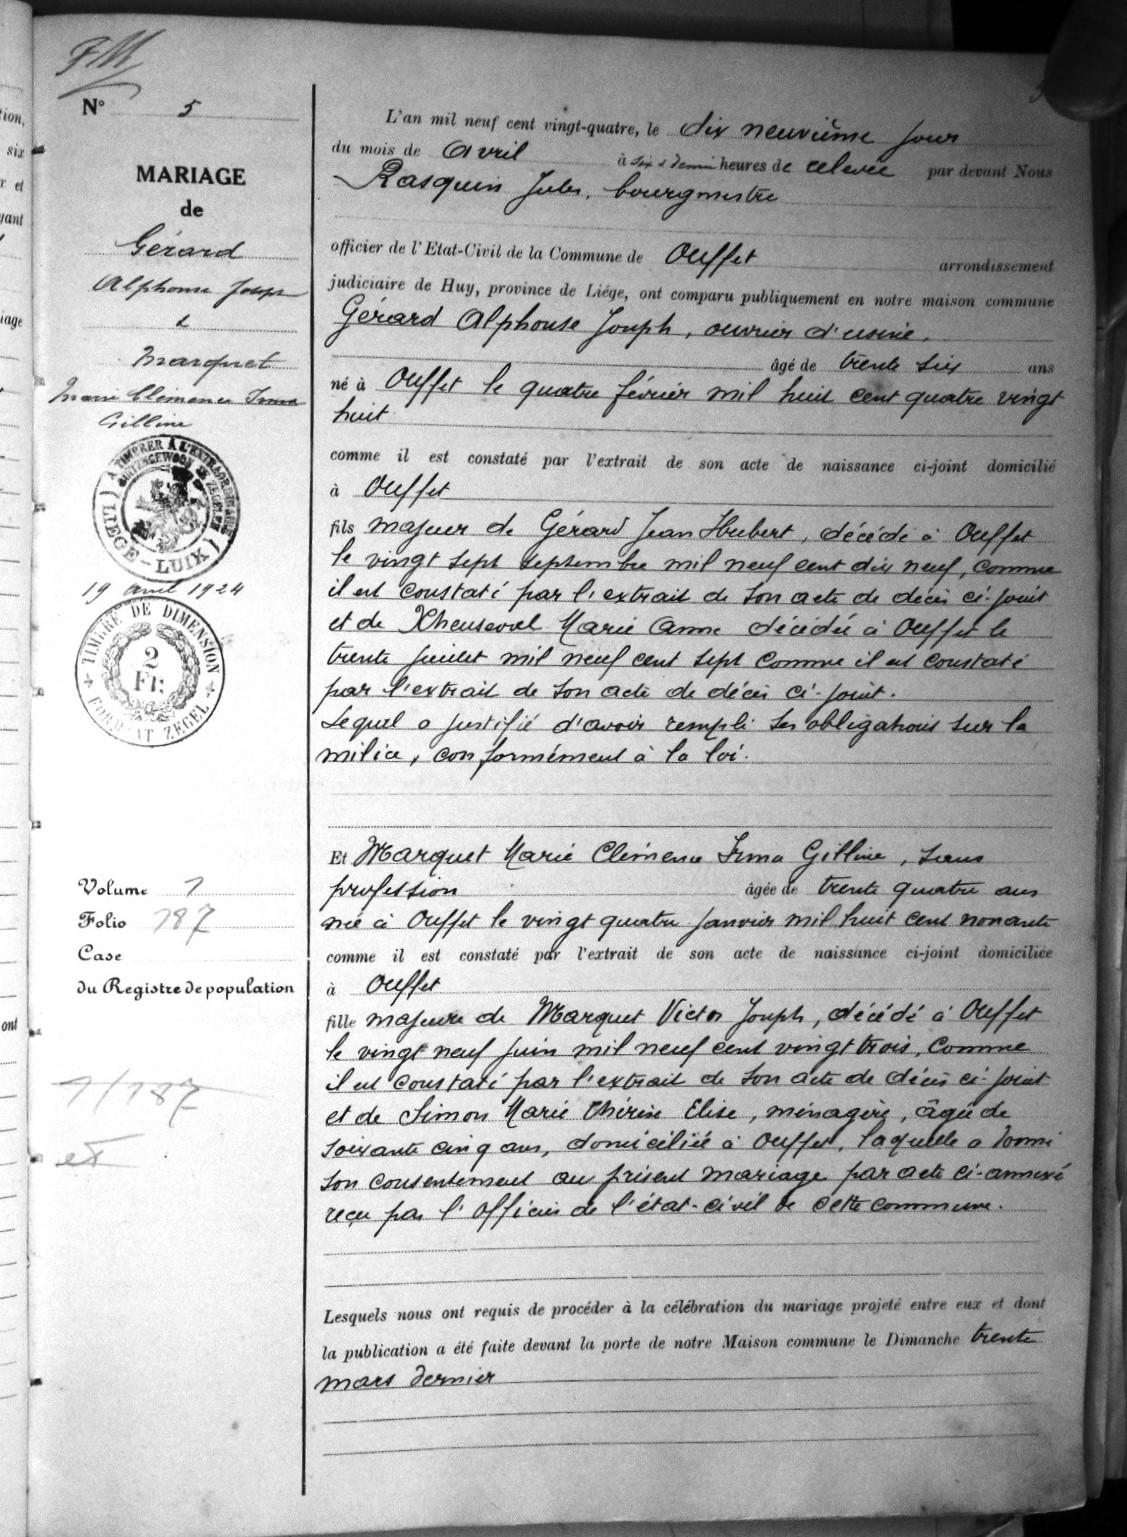 FM
N° 5
MARIAGE
de
Gérard
Alphonse Joseph
&
Marquet
Marie Clémence Irma
Gilline
À TIMBRER À L'EXTRAORDINAIRE
BUITENGEWOON TE ZEGELEN
LIÉGE - LUIK
19 avril 1924
TIMBRE DE DIMENSION
2
Fr.
FORMAAT ZEGEL
Volume 1
Folio 187
Case
du Registre de population
1/187
L'an mil neuf cent vingt-quatre, le dix neuvième jour
du mois de avril à six & demi heures de relevée par devant Nous
Rasquin Jules, bourgmestre
officier de l'Etat-Civil de la Commune de Ouffet arrondissement
judiciaire de Huy, province de Liége, ont comparu publiquement en notre maison commune
Gérard Alphonse Joseph, ouvrier d'usine,
âgé de trente six ans
né à Ouffet le quatre février mil huit cent quatre vingt
huit
comme il est constaté par l'extrait de son acte de naissance ci-joint domicilié
à Ouffet
fils majeur de Gérard Jean Hubert, décédé à Ouffet
le vingt sept septembre mil neuf cent dix neuf, comme
il est constaté par l'extrait de son acte de décès ci-joint
et de Xheuseval Marie Anne décédée à Ouffet le
trente juillet mil neuf cent sept comme il est constaté
par l'extrait de son acte de décès ci-joint.
Lequel a justifié d'avoir rempli ses obligations sur la
milice, conformément à la loi.
Et Marquet Marie Clémence Irma Gilline, sans
profession âgée de trente quatre ans
née à Ouffet le vingt quatre janvier mil huit cent nonante
comme il est constaté par l'extrait de son acte de naissance ci-joint domiciliée
à Ouffet
fille majeure de Marquet Victor Joseph, décédé à Ouffet
le vingt neuf juin mil neuf cent vingt trois, comme
il est constaté par l'extrait de son acte de décès ci-joint
et de Simon Marie Thérèse Elise, ménagère, âgée de
soixante cinq ans, domiciliée à Ouffet, laquelle a donné
son consentement au présent mariage par acte ci-annexé
reçu par l'officier de l'état-civil de cette commune.
Lesquels nous ont requis de procéder à la célébration du mariage projeté entre eux et dont
la publication a été faite devant la porte de notre Maison commune le Dimanche trente
mars dernier